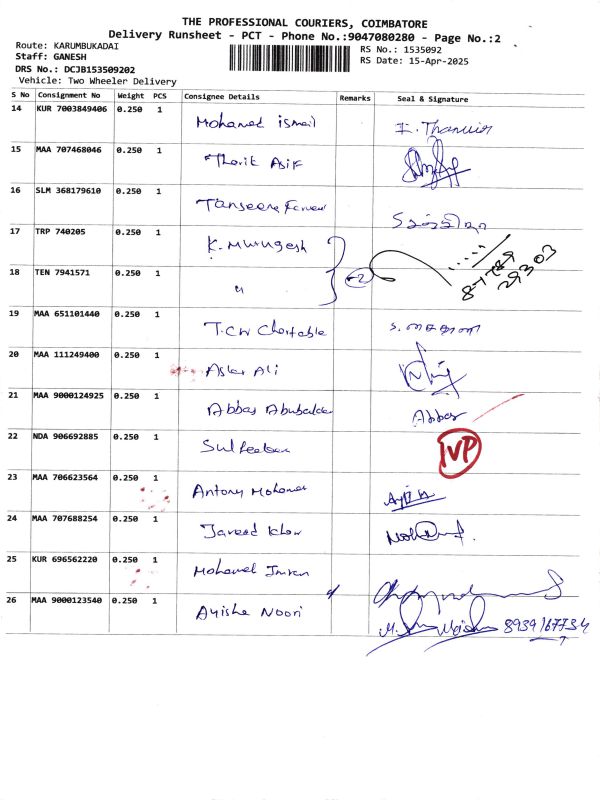 THE PROFESSIONAL COURIERS, COIMBATORE
Delivery Runsheet - PCT - Phone No.:9047080280 - Page No.:2
Route: KARUMBUKADAI
Staff: GANESH
DRS No.: DCJB153509202
Vehicle: Two Wheeler Delivery
RS No.: 1535092
RS Date: 15-Apr-2025
S No Consignment No Weight PCS Consignee Details Remarks Seal & Signature
14 KUR 7003849406 0.250 1 Mohamed ismail
15 MAA 707468046 0.250 1 Tharik Asif
16 SLM 368179610 0.250 1
17 TRP 740205 0.250 1 K. Murugesh
18 TEN 7941571 0.250 1 "
19 MAA 651101440 0.250 1 T.CW
20 MAA 111249400 0.250 1 Ali
21 MAA 9000124925 0.250 1 Abbas Abubakar Abbas
22 NDA 906692885 0.250 1 IVP
23 MAA 706623564 0.250 1 Antony
24 MAA 707688254 0.250 1 Javeed khan
25 KUR 696562220 0.250 1 Mohamed Imran
26 MAA 9000123540 0.250 1 Ayisha Noori 8939167734